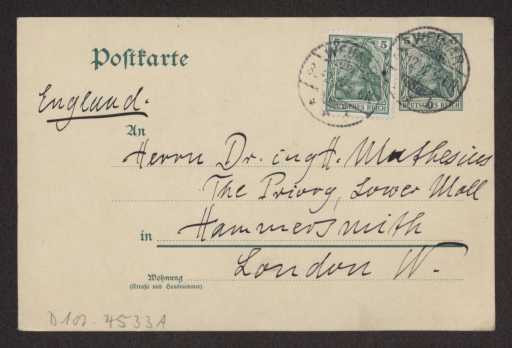 Postkarte
5
DEUTSCHES REICH
DEUTSCHES REICH
England.
An
Herrn Dr. ing H. Muthesius
The Priory, Lower Mall
in Hammersmith
London W.
Wohnung
(Straße und Hausnummer)
D 102-4533A